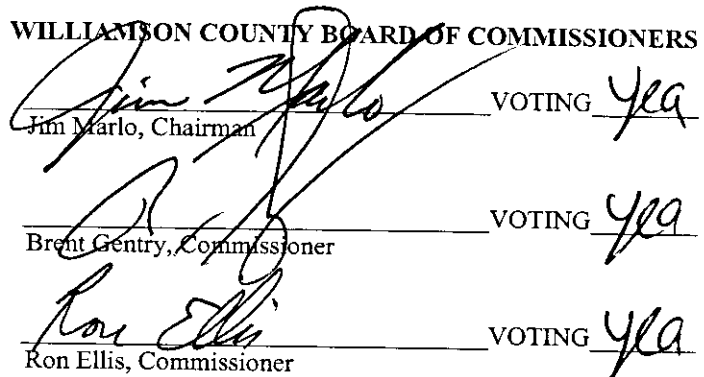 WILLIAMSON COUNTY BOARD OF COMMISSIONERS
Jim Marlo VOTING Yea
Jim Marlo, Chairman
VOTING Yea
Brent Gentry, Commissioner
Ron Ellis VOTING Yea
Ron Ellis, Commissioner